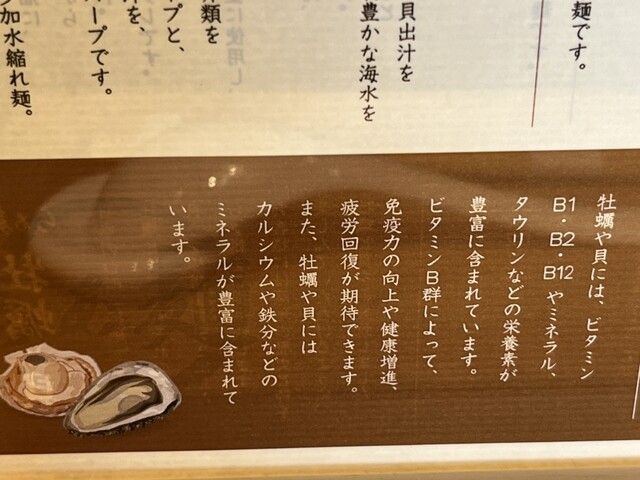 麺です。
貝出汁を
豊かな海水を
類を
プと、
を、
ープです。
加水縮れ麺。
牡蠣や貝には、ビタミン
B1・B2・B12やミネラル、
タウリンなどの栄養素が
豊富に含まれています。
ビタミンB群によって、
免疫力の向上や健康増進、
疲労回復が期待できます。
また、牡蠣や貝には
カルシウムや鉄分などの
ミネラルが豊富に含まれて
います。